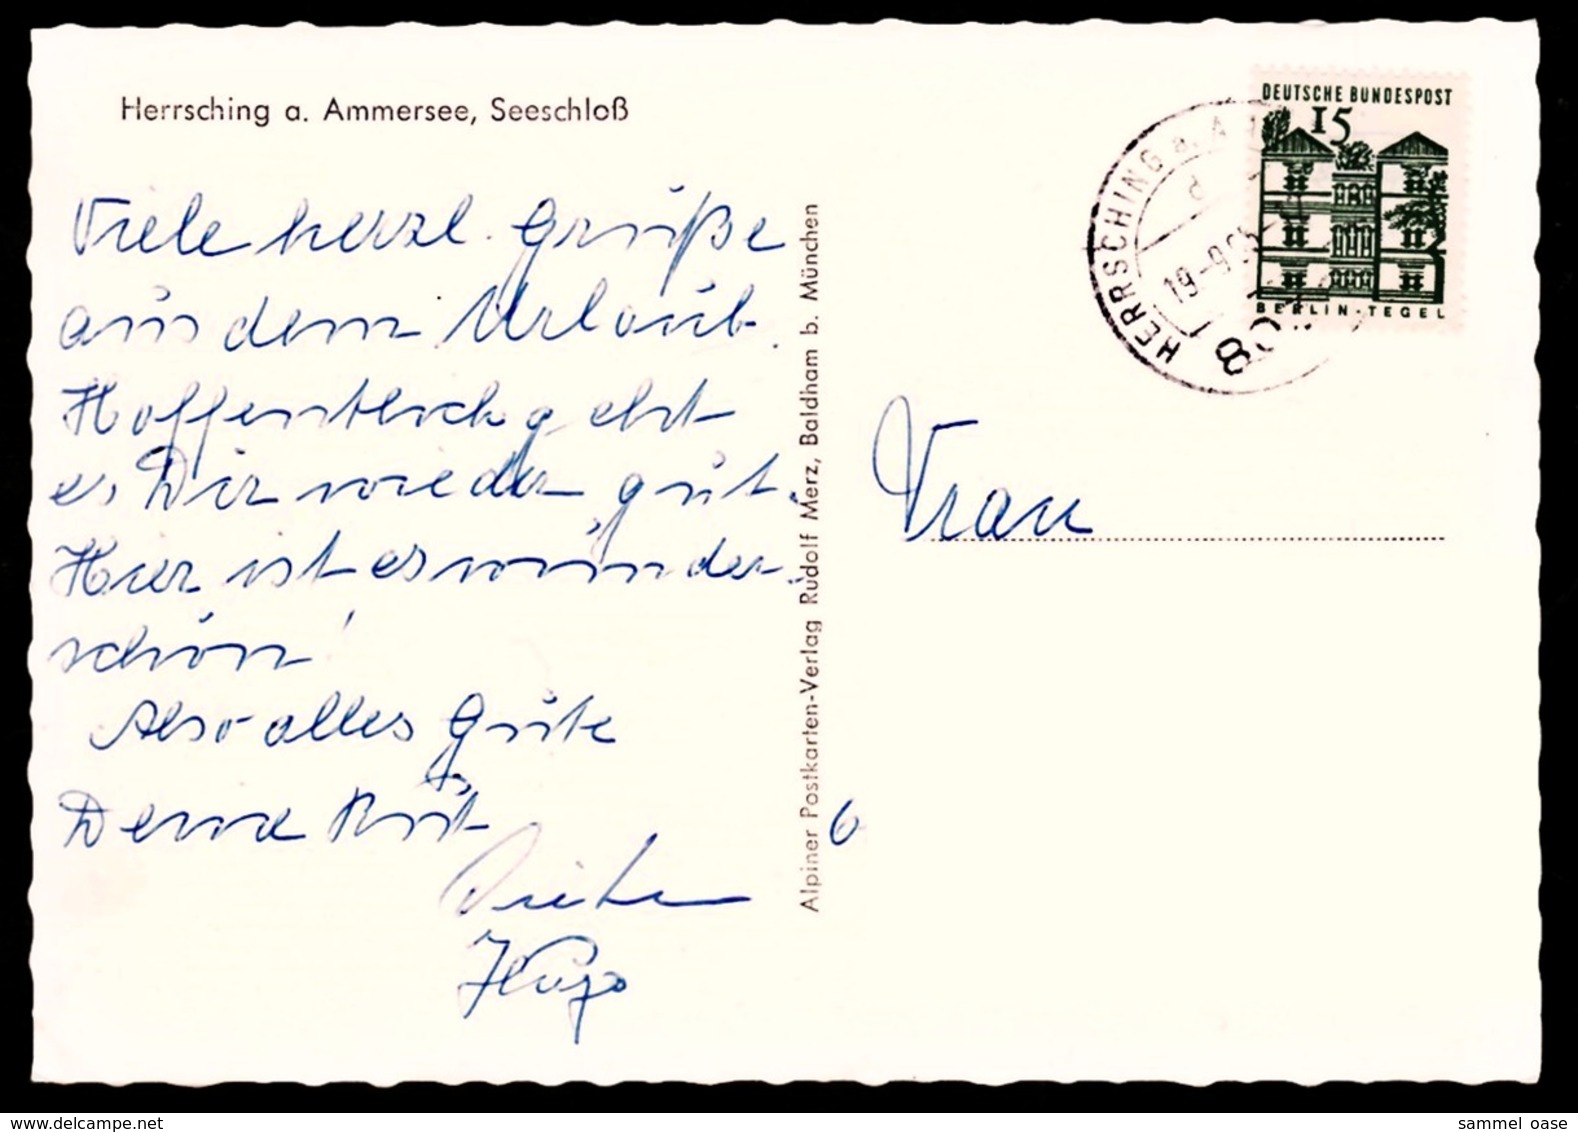 Herrsching a. Ammersee, Seeschloß
Viele herzl. Grüße
aus dem Urlaub.
Hoffentlich geht
es Dir wieder gut.
Hier ist es wunder-
schön!
Also alles Gute
Deine Rut
Hugo
Alpiner Postkarten-Verlag Rudolf Merz, Baldham b. München
DEUTSCHE BUNDESPOST
15
BERLIN-TEGEL
HERRSCHING a. A
d
19.-9.65
Frau
6
www.delcampe.net
sammel_oase